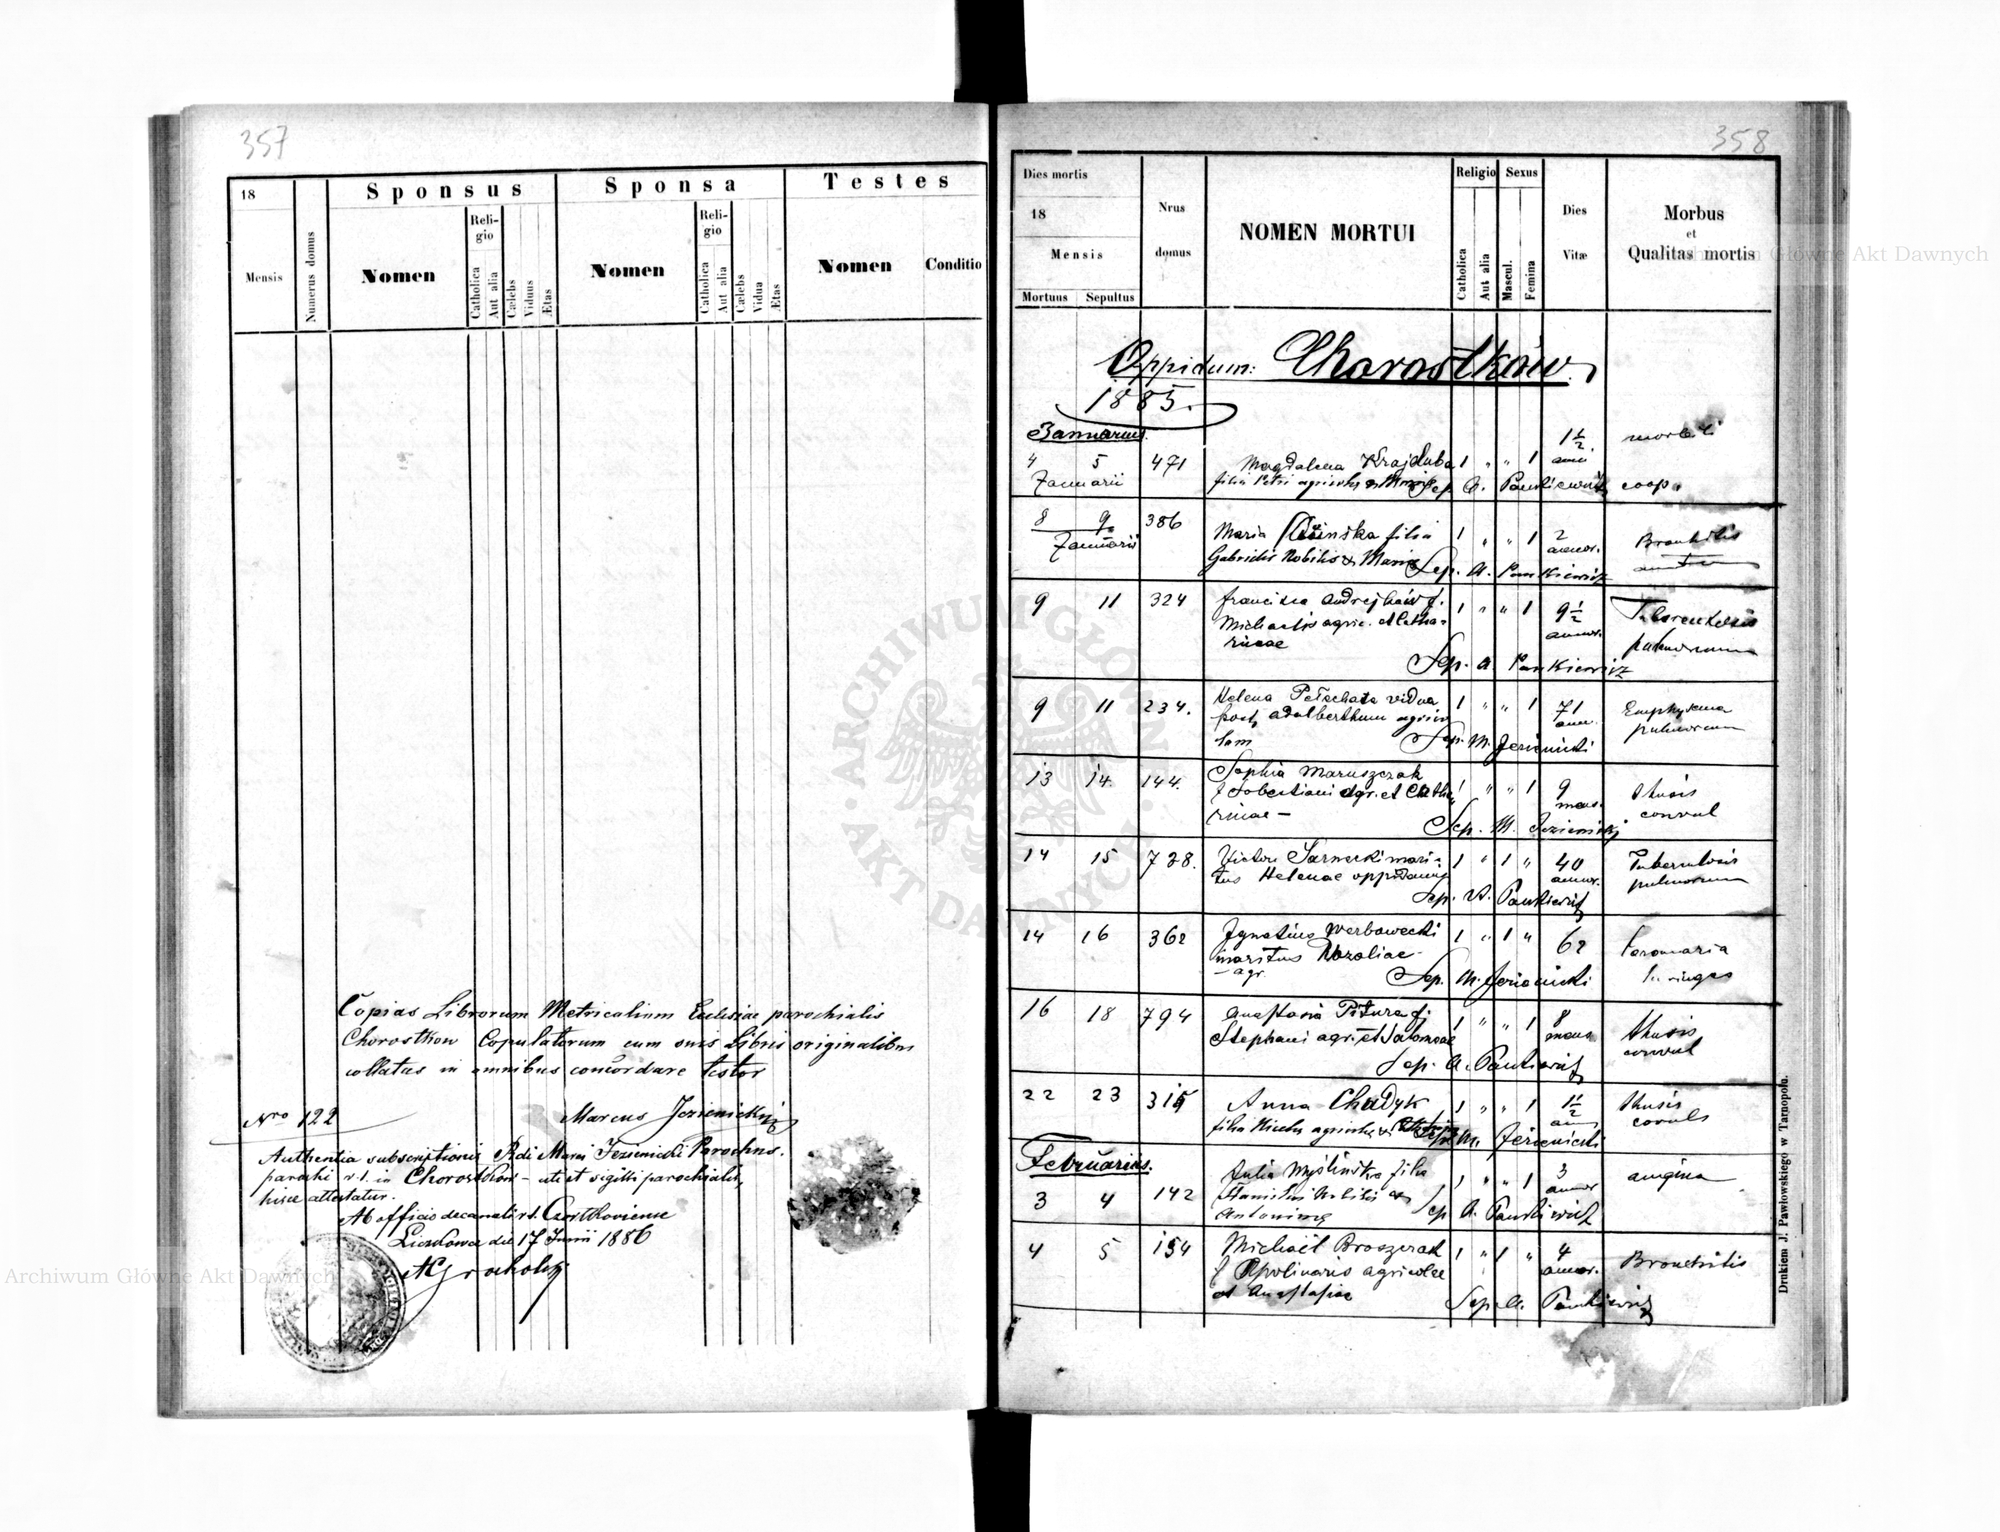 357
18
Mensis
Numerus domus
Sponsus
Nomen
Religio
Catholica
Aut alia
Cælebs
Viduus
Ætas
Sponsa
Nomen
Religio
Catholica
Aut alia
Cælebs
Vidua
Ætas
Testes
Nomen
Conditio
Copias Librorum Metricalium Ecclesiae parochialis
Chorostkow Copulatorum cum suis Libris originalibus
collatas in omnibus concordare testor
Marcus Jezienicki
Nro 122
Authentia subscriptionis Rdi Marci Jezienicki Parochus.
parochi r. l. in Chorostków – uti et sigilli parochialis,
hisce attestatur.
Ab officio decanali r. l. Czortkoviensi
die 17 Junii 1886
358
Dies mortis
18
Mensis
Mortuus Sepultus
Nrus domus
NOMEN MORTUI
Religio
Catholica
Aut alia
Sexus
Mascul.
Femina
Dies Vitæ
Morbus
et
Qualitas mortis
Oppidum: Chorostków
1885.
Januarius
4 5 471 Magdalena Krajduba 1 " " 1 1 1/2 anni morbili
Januarii filia Petri agricolae Sep. A. Pankiewicz coop.
8 9 386 Maria filia 1 " " 1 2 annor. Bronchitis
Januarii Gabrielis Nobilis & Maria Sep. A. Pankiewicz
9 11 324 Francisca Andrejków f. 1 " " 1 9 1/2 annor. Tuberculosis
Michaelis agric. et Catha- pulmonum
rinae
Sep. A. Pankiewicz
9 11 234. Helena Pełechata vidua 1 " " 1 71 ann. Emphysema
post Adalberthum agrico pulmonum
lam Sep. M. Jezienicki
13 14. 144. Sophia Maruszczak 1 " " 1 9 mens. thusis
f Sebestiani agr. et Catha convul
rinae – Sep. M. Jezienicki
14 15 728. Victor Sarnecki mari- 1 " 1 " 40 annor. Tuberculosis
tus Helenae oppidanus pulmonum
Sep. A. Pankiewicz
14 16 362 Ignatius Werbowecki 1 " 1 " 62
maritus Rozaliae
– agr. Sep. M. Jezienicki
16 18 794 Anastasia Pitura f. 1 " " 1 8 mens thusis
Stephani agr. et Salomeae convul
Sep. A. Pankiewicz
22 23 315 Anna Chudyk 1 " " 1 1 1/2 ann thusis
filia agricolae Sep. M. Jezienicki convuls
Februarius.
3 4 142 Julia Myślińska filia 1 " " 1 3 annor angina
Stanislai Nobilis &
Antoninae Sep A. Pankiewicz
4 5 154 Michaël Broszczak 1 " 1 " 4 annor. Bronchitis
f Apolinaris agricolae
et Anastasiae Sep. A. Pankiewicz
Drukiem J. Pawłowskiego w Tarnopolu.
Archiwum Główne Akt Dawnych
Archiwum Główne Akt Dawnych
ARCHIWUM GŁÓWNE
AKT DAWNYCH